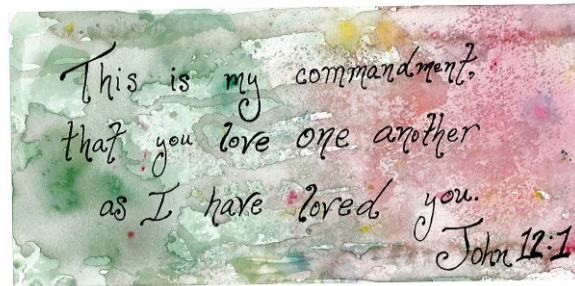 This is my commandment,
that you love one another
as I have loved you.
John 12:1